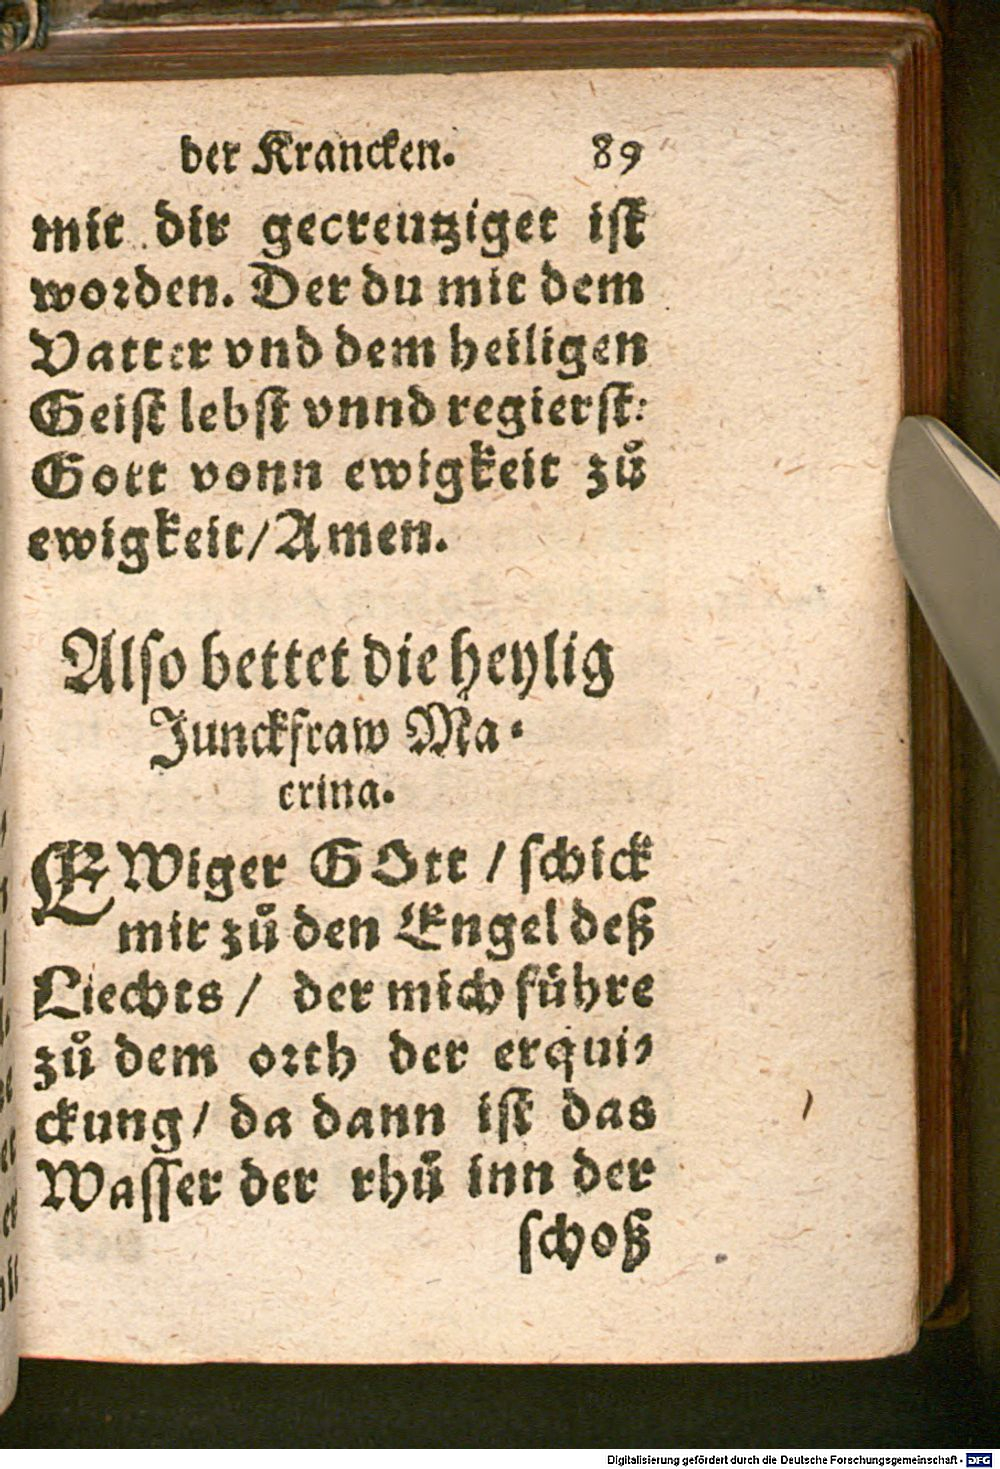 der Krancken. 89
mit dir gecreutziget iſt
worden. Der du mit dem
Vatter vnd dem heiligen
Geiſt lebſt vnnd regierſt:
Gott vonn ewigkeit zuͦ
ewigkeit/Amen.
Alſo bettet die heylig
Junckfraw Ma-
crina.
EWiger GOtt / ſchick
mir zuͦ den Engel deß
Liechts / der mich fuͤhre
zuͦ dem orth der erqui-
ckung / da dann iſt das
Waſſer der rhuͦ inn der
ſchoß
Digitalisierung gefördert durch die Deutsche Forschungsgemeinschaft - DFG